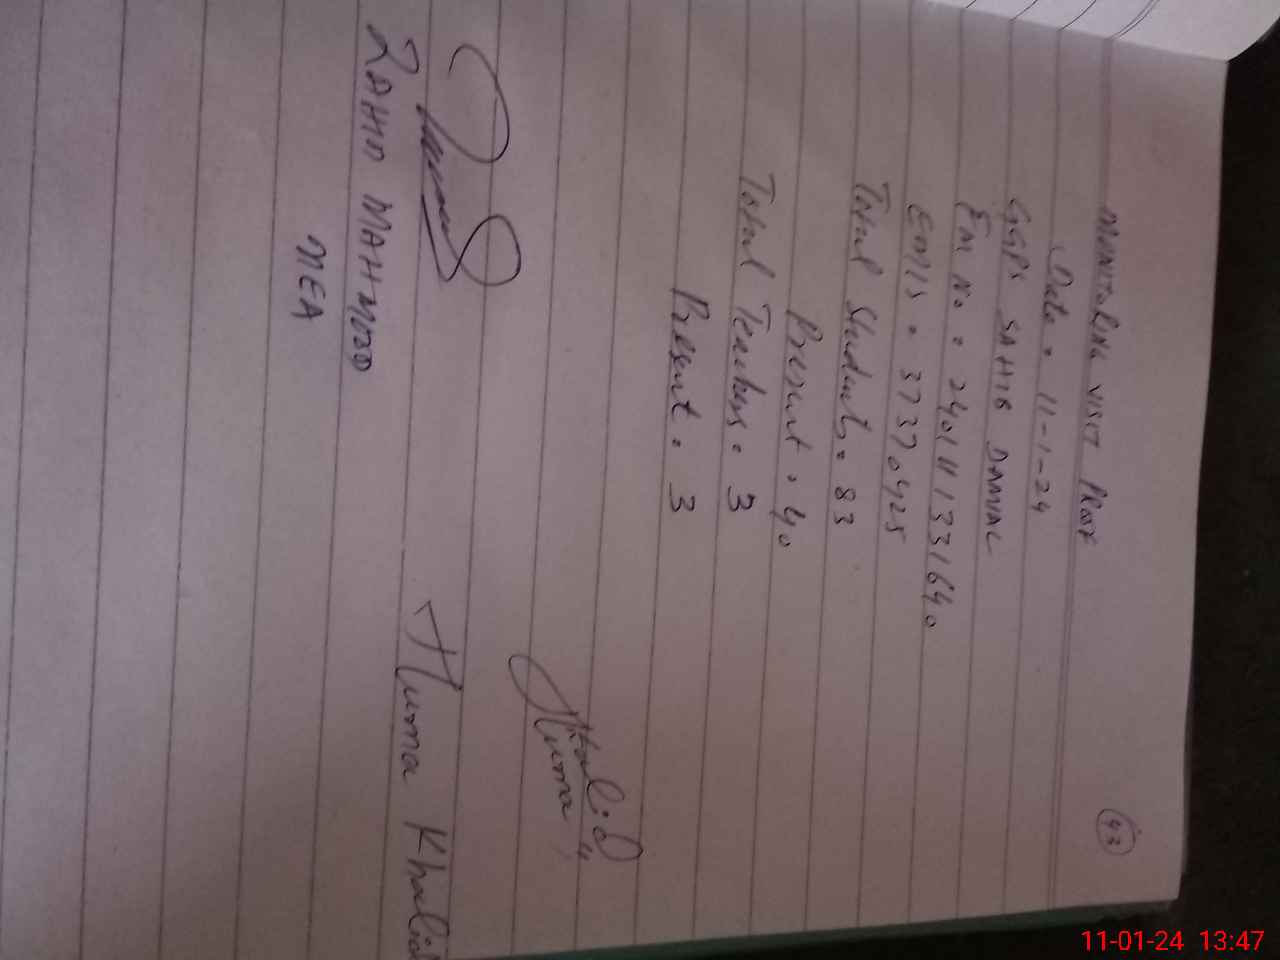 43
MONITORING VISIT PROOF
Date = 11-1-24
GGPS SAHIB DAMIAL
EM No = 240111331640
EMIS = 37370425
Total Students = 83
Present = 40
Total Teachers = 3
Present = 3
Khalid
Huma
ZAHID MAHMOOD
Huma Khalid
MEA
11-01-24 13:47